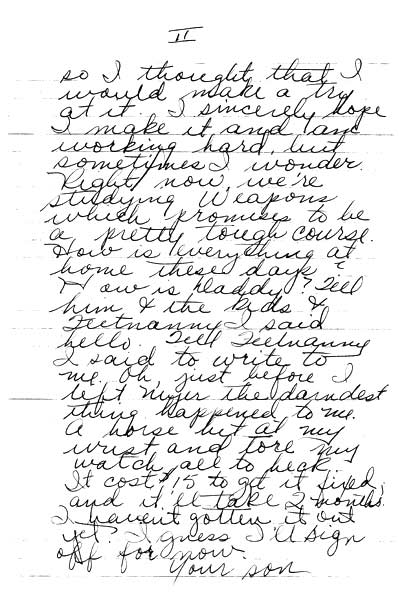 II
so I thought that I
would make a try
at it. I sincerely hope
I make it and am
working hard, but
sometimes I wonder.
Right now, we're
studying Weapons
which promises to be
a pretty tough course.
How is everything at
home these days?
How is Daddy? Tell
him & the kids &
Feetnanny I said
hello. Tell Feetnanny
I said to write to
me. Oh, just before I
left Myer the darndest
thing happened to me.
A horse bit at my
wrist and tore my
watch all to heck.
It cost $15 to get it fixed
and it'll take 2 months.
I haven't gotten it out
yet. I guess I'll sign
off for now.
Your son